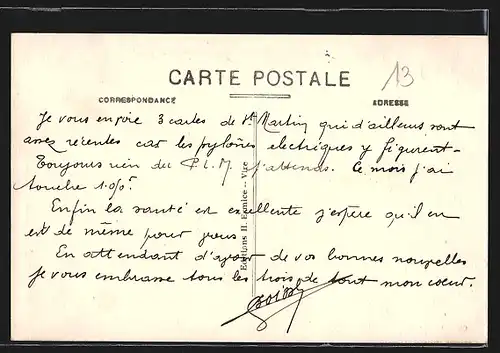 13
CARTE POSTALE
CORRESPONDANCE
ADRESSE
Je vous envoie 3 cartes de St Martin qui d'ailleurs sont
assez récentes car les pylônes electriques y figurent-
Toujours rien du P.L.M. j'attends. Ce mois j'ai
touché 105f.
Enfin la santé est excellente j'espère qu'il en
est de même pour vous.
En attendant d'avoir de vos bonnes nouvelles
je vous embrasse tous les trois de tout mon cœur.
Editions H. - Vire